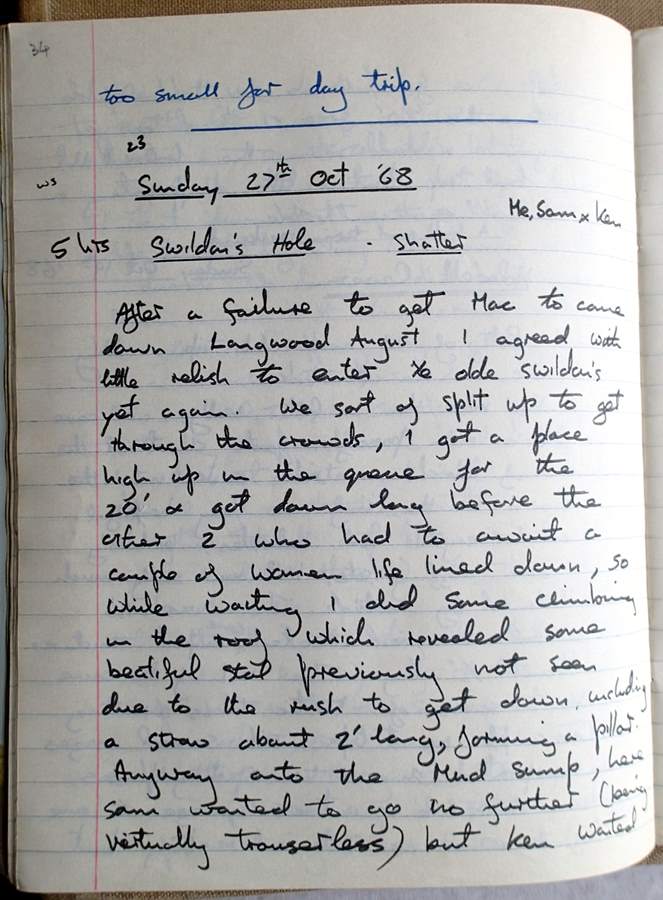 34
too small for day trip.
23
ws Sunday 27th Oct '68
Me, Sam & Ken
5 hrs Swildon's Hole - Shatter
After a failure to get Mac to come
down Langwood August I agreed with
little relish to enter Ye olde Swildon's
yet again. We sort of split up to get
through the crowds, I got a place
high up in the queue for the
20' & got down long before the
other 2 who had to await a
couple of women life lined down, so
while waiting I did some climbing
in the roof which revealed some
beatiful stal previously not seen
due to the rush to get down, including
a straw about 2' long, forming a pillar.
Anyway onto the Mud Sump, here
Sam wanted to go no further (being
vertually trouserless) but Ken wanted